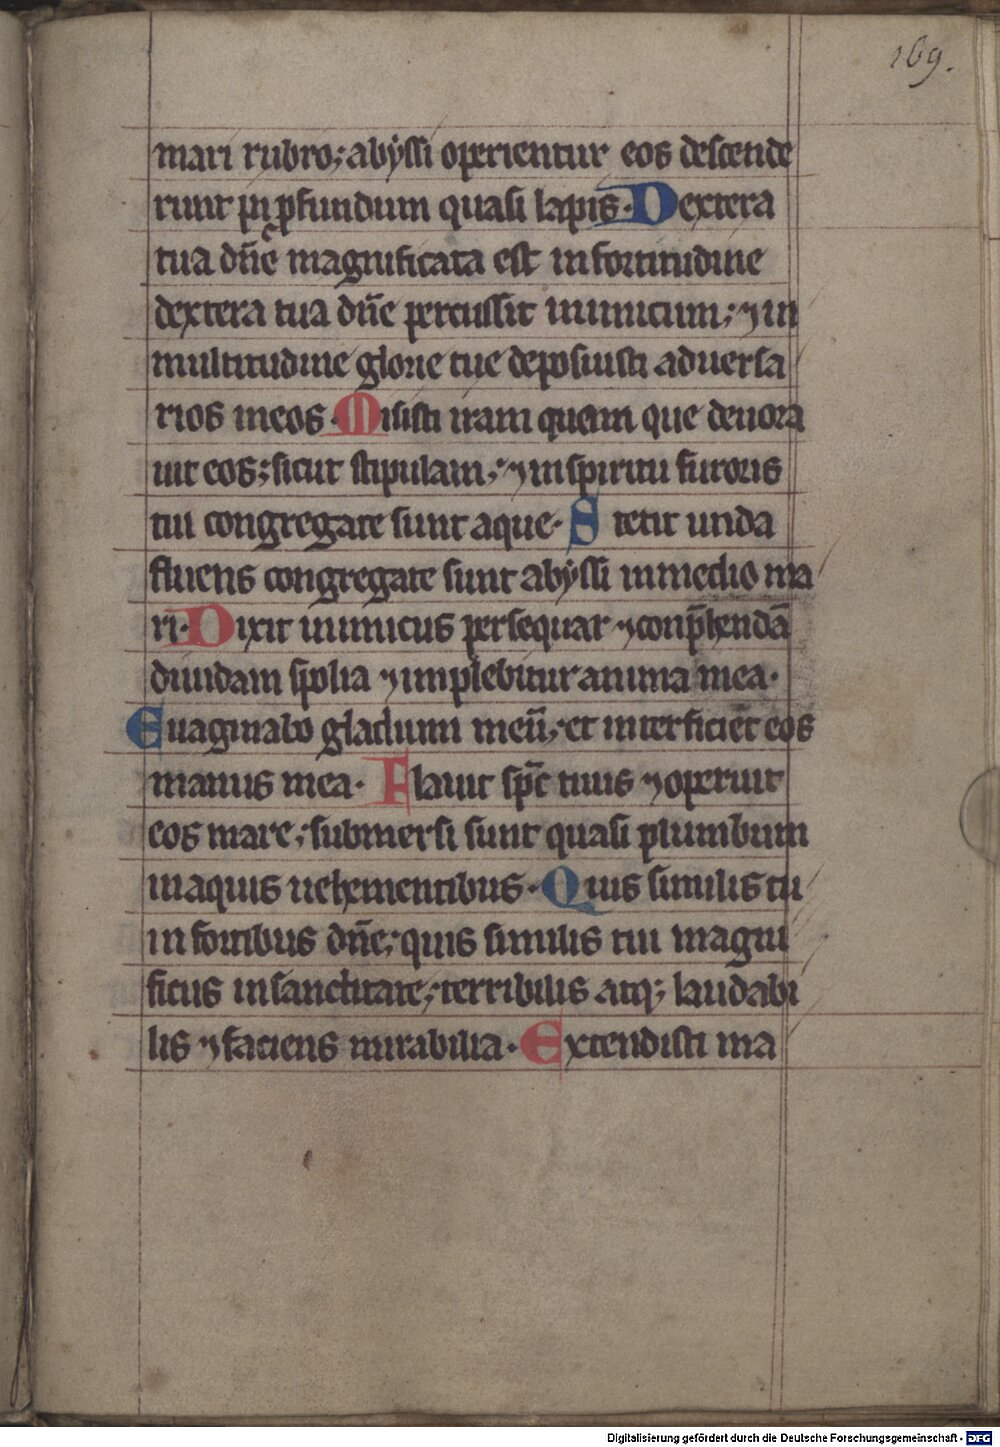 169.
mari rubro; abyssi operientur eos descende
runt in ꝓfundum quasi lapis. Dextera
tua dn̄e magnificata est in fortitudine
dextera tua dn̄e percussit inimicum; ⁊ in
multitudine glorie tue deposuisti aduersa
rios meos. Misisti iram quam que deuora
uit eos; sicut stipulam; ⁊ in spiritu furoris
tui congregate sunt aque. Stetit unda
fluens congregate sunt abyssi in medio ma
ri. Dixit inimicus persequar ⁊ conp̄hendā
diuidam spolia ⁊ implebitur anima mea.
Euaginabo gladium meū; et interficiet eos
manus mea. Flauit sp̄c tuus ⁊ operuit
eos mare; submersi sunt quasi plumbum
in aquis uehementibus. Quis similis tui
in fortibus dn̄e; quis similis tui magni
ficus in sanctitate; terribilis atq; laudabi
lis ⁊ faciens mirabilia. Extendisti ma
Digitalisierung gefördert durch die Deutsche Forschungsgemeinschaft - DFG